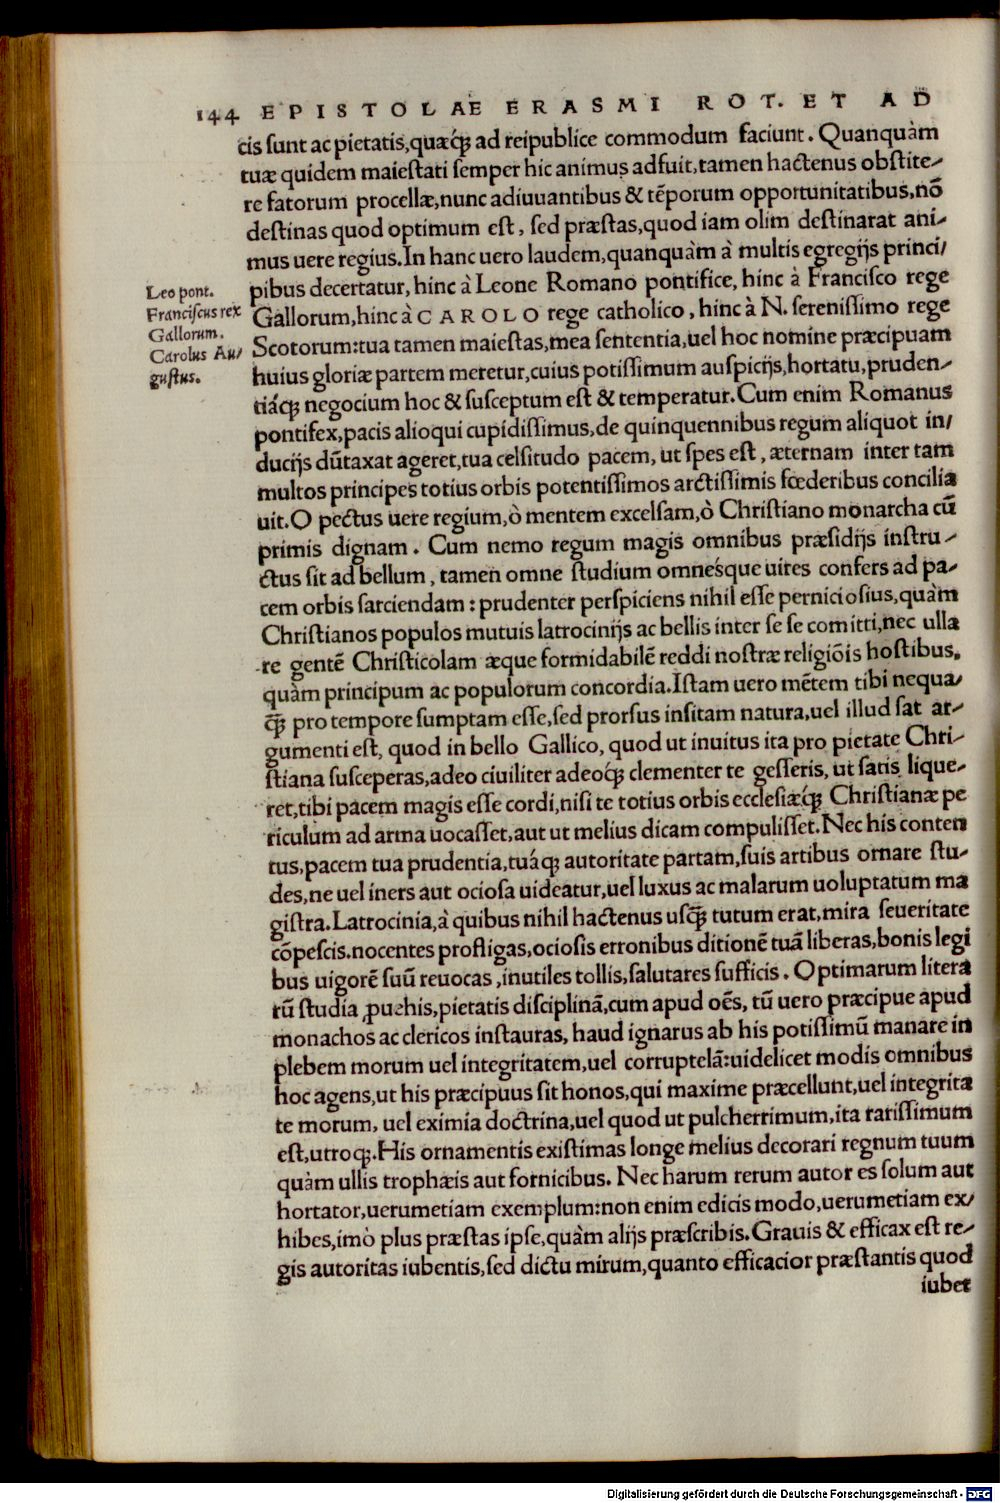 144 EPISTOLAE ERASMI ROT. ET AD
cis sunt ac pietatis,quæq́ꝫ ad reipublice commodum faciunt. Quanquàm
tuæ quidem maiestati semper hic animus adfuit,tamen hactenus obstite-
re fatorum procellæ,nunc adiuuantibus & tẽporum opportunitatibus,nõ
destinas quod optimum est, sed præstas,quod iam olim destinarat ani-
mus uere regius.In hanc uero laudem,quanquàm à multis egregijs princi/
pibus decertatur, hinc à Leone Romano pontifice, hinc à Francisco rege
Gallorum,hinc à CAROLO rege catholico, hinc à N. serenissimo rege
Scotorum:tua tamen maiestas,mea sententia,uel hoc nomine præcipuam
huius gloriæ partem meretur,cuius potissimum auspicijs,hortatu,pruden-
tiáqꝫ negocium hoc & susceptum est & temperatur.Cum enim Romanus
pontifex,pacis alioqui cupidissimus,de quinquennibus regum aliquot in/
ducijs dũtaxat ageret,tua celsitudo pacem, ut spes est, æternam inter tam
multos principes totius orbis potentissimos arctissimis fœderibus concilia
uit.O pectus uere regium,ò mentem excelsam,ò Christiano monarcha cũ
primis dignam. Cum nemo regum magis omnibus præsidijs instru-
ctus sit ad bellum, tamen omne studium omnésque uires confers ad pa-
cem orbis sarciendam: prudenter perspiciens nihil esse perniciosius,quàm
Christianos populos mutuis latrocinijs ac bellis inter se se comitti,nec ulla
re gentẽ Christicolam æque formidabilẽ reddi nostræ religiõis hostibus,
quàm principum ac populorum concordia.Istam uero mẽtem tibi nequa/
q̃ꝫ pro tempore sumptam esse,sed prorsus insitam natura,uel illud sat ar-
gumenti est, quod in bello Gallico, quod ut inuitus ita pro pietate Chri-
stiana susceperas,adeo ciuiliter adeoq́ꝫ clementer te gesseris, ut satis lique-
ret,tibi pacem magis esse cordi,nisi te totius orbis ecclesiæq́ꝫ Christianæ pe
riculum ad arma uocasset,aut ut melius dicam compulisset.Nec his conten
tus,pacem tua prudentia,tuáqꝫ autoritate partam,suis artibus ornare stu-
des,ne uel iners aut ociosa uideatur,uel luxus ac malarum uoluptatum ma
gistra.Latrocinia,à quibus nihil hactenus usq̃ꝫ tutum erat,mira seueritate
cõpescis.nocentes profligas,ociosis erronibus ditionẽ tuã liberas,bonis legi
bus uigorẽ suũ reuocas,inutiles tollis,salutares sufficis. Optimarum litera
rũ studia ꝓuehis,pietatis disciplinã,cum apud oẽs, tũ uero præcipue apud
monachos ac clericos instauras, haud ignarus ab his potissimũ manare in
plebem morum uel integritatem,uel corruptelã:uidelicet modis omnibus
hoc agens,ut his præcipuus sit honos,qui maxime præcellunt,uel integrita
te morum, uel eximia doctrina,uel quod ut pulcherrimum,ita rarissimum
est,utroqꝫ.His ornamentis existimas longe melius decorari regnum tuum
quàm ullis trophæis aut fornicibus. Nec harum rerum autor es solum aut
hortator,uerumetiam exemplum:non enim edicis modo,uerumetiam ex/
hibes,imò plus præstas ipse,quàm alijs præscribis.Grauis & efficax est re-
gis autoritas iubentis,sed dictu mirum,quanto efficacior præstantis quod
iubet
Leo pont.
Franciscus rex
Gallorum.
Carolus Au/
gustus.
Digitalisierung gefördert durch die Deutsche Forschungsgemeinschaft - DFG